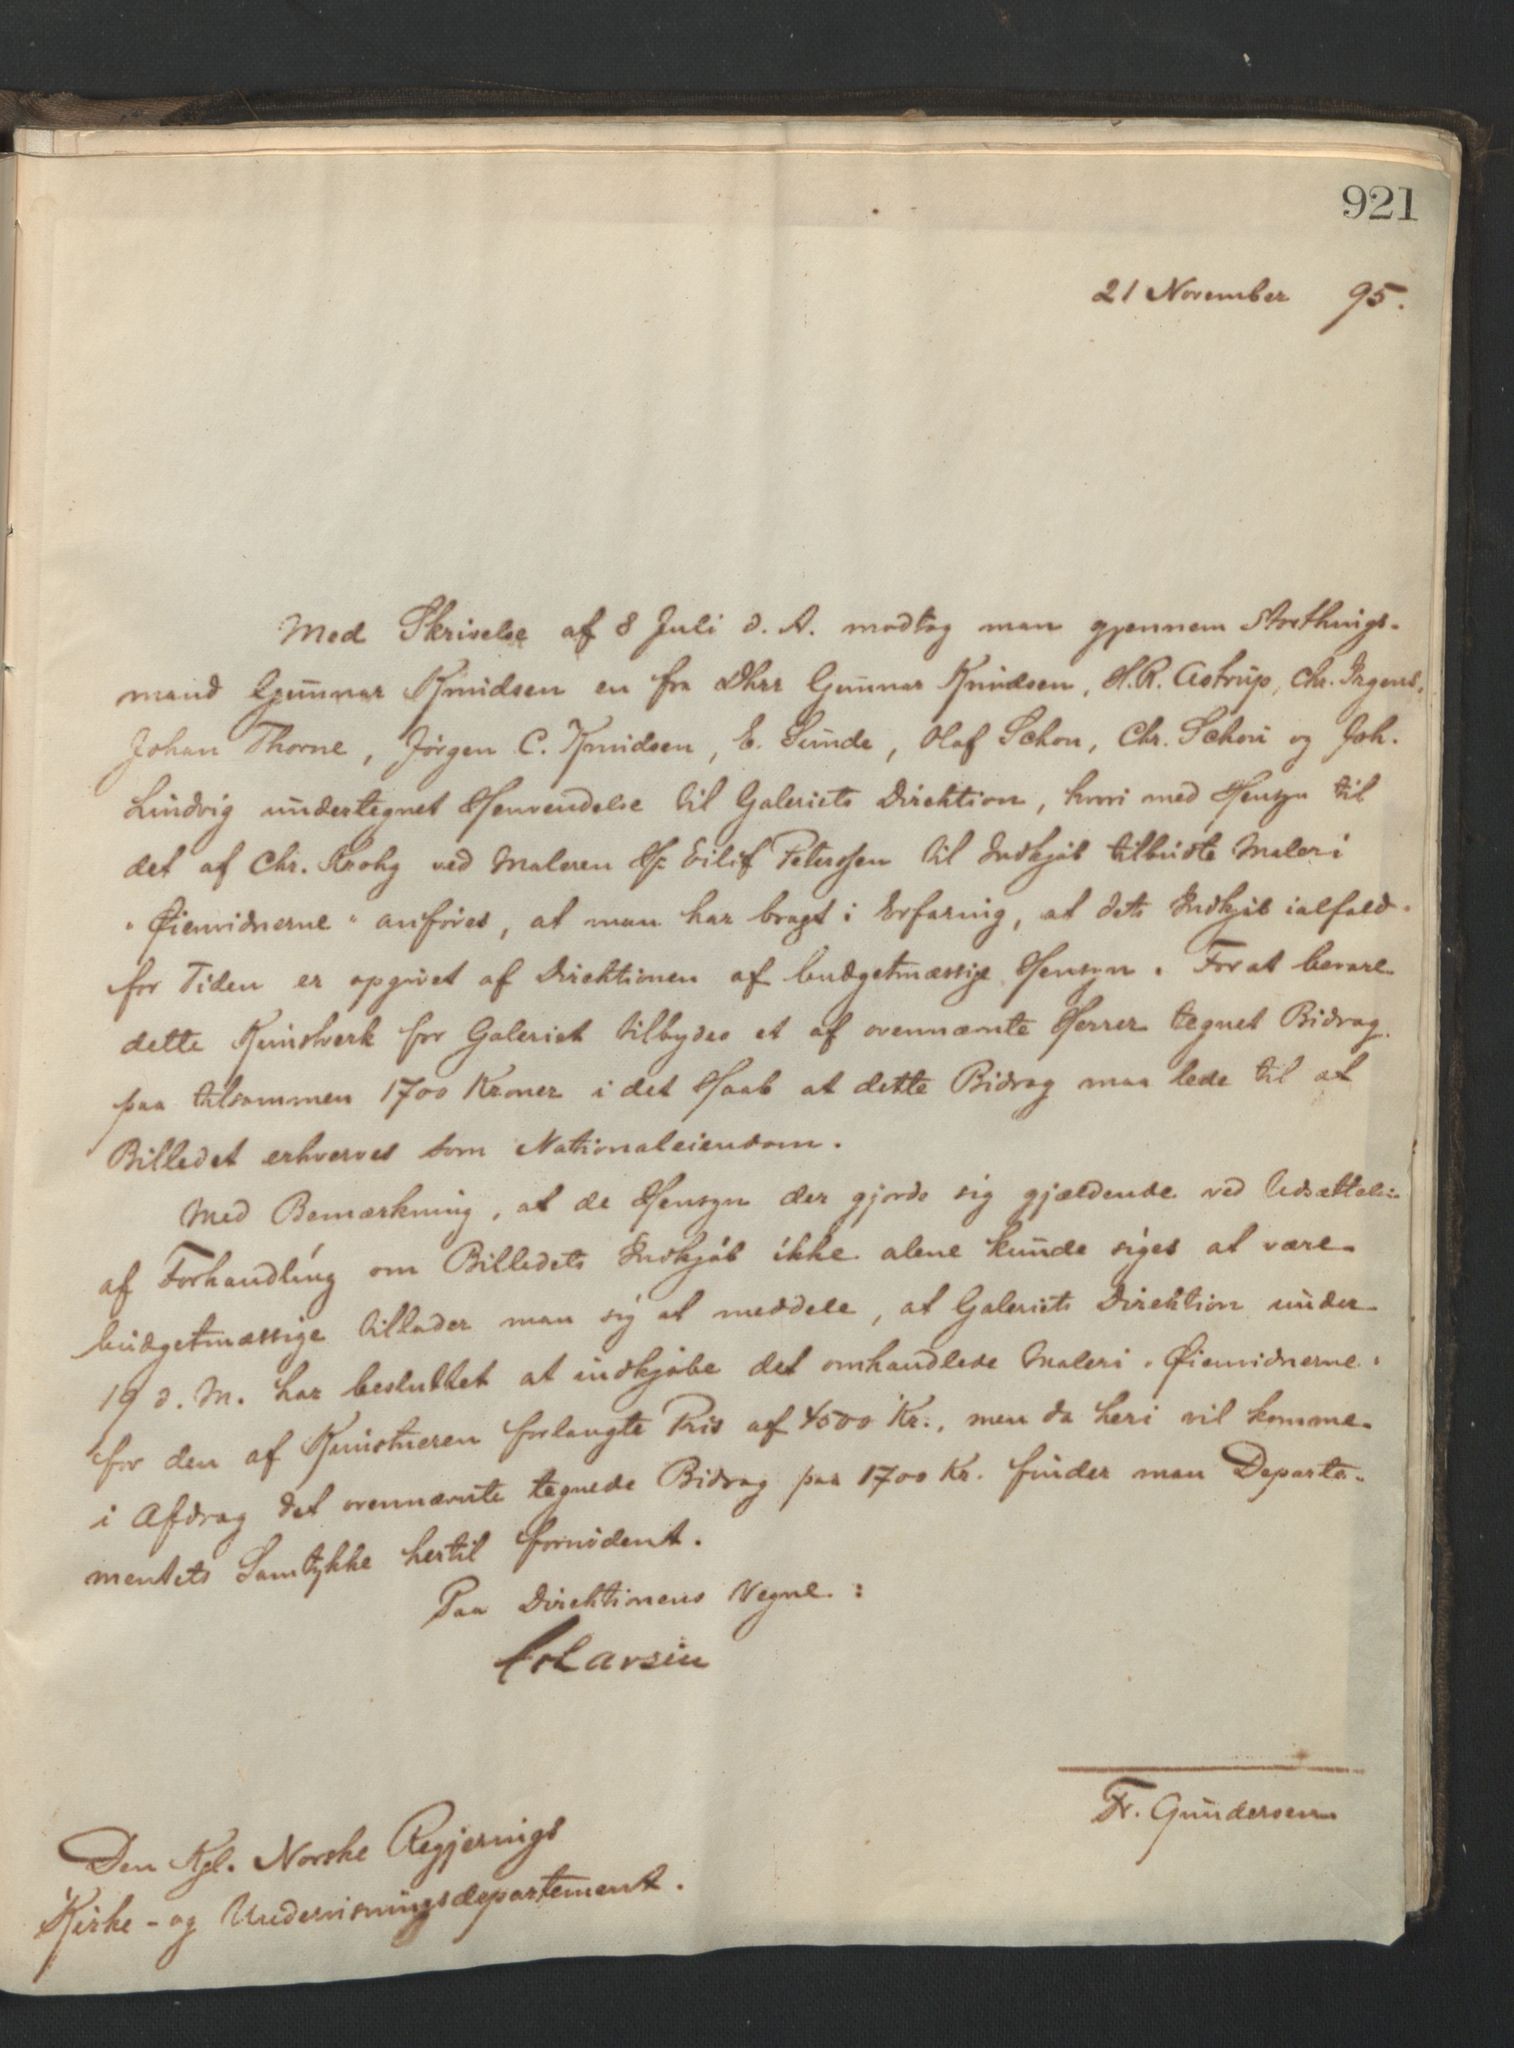 921
21 November 95.
Med Skrivelse af 8 Juli d. A. modtog man gjennem Storthings-
mand Gunnar Knudsen en fra Dhrr Gunnar Knudsen, H. R. Astrup, Chr. Irgens,
Johan Thorne, Jörgen C. Knudsen, E. Sunde, Olaf Schou, Chr. Schou og Joh.
Lindvig undertegnet Henvendelse til Galeriets Direktion, hvori med Hensyn til
det af Chr. Krohg ved Maleren Hr Eilif Peterssen til Indkjöb tilbudte Maleri
"Øienvidnerne" anföres, at man har bragt i Erfaring, at dets Indkjöb ialfald
for Tiden er opgivet af Direktionen af budgetmæssige Hensyn. For at bevare
dette Kunstverk for Galeriet tilbydes et af ovennævnte Herrer tegnet Bidrag
paa tilsammen 1700 Kroner i det Haab at dette Bidrag maa lede til at
Billedet erhverves som Nationaleiendom.
Med Bemærkning, at de Hensyn der gjorde sig gjældende ved Udsættelse
af Forhandling om Billedets Indkjöb ikke alene kunde siges at være
budgetmæssige tillader man sig at meddele, at Galeriets Direktion under
19 d. M. har besluttet at indkjöbe det omhandlede Maleri "Øienvidnerne"
for den af Kunstneren forlangte Pris af 4500 Kr., men da heri vil komme
i Afdrag det ovennævnte tegnede Bidrag paa 1700 Kr. finder man Departe-
mentets Samtykke hertil fornödent.
Paa Direktionens Vegne:
Larsen
Fr. Gundersen
Den Kgl. Norske Regjerings
Kirke- og Undervisningsdepartement.